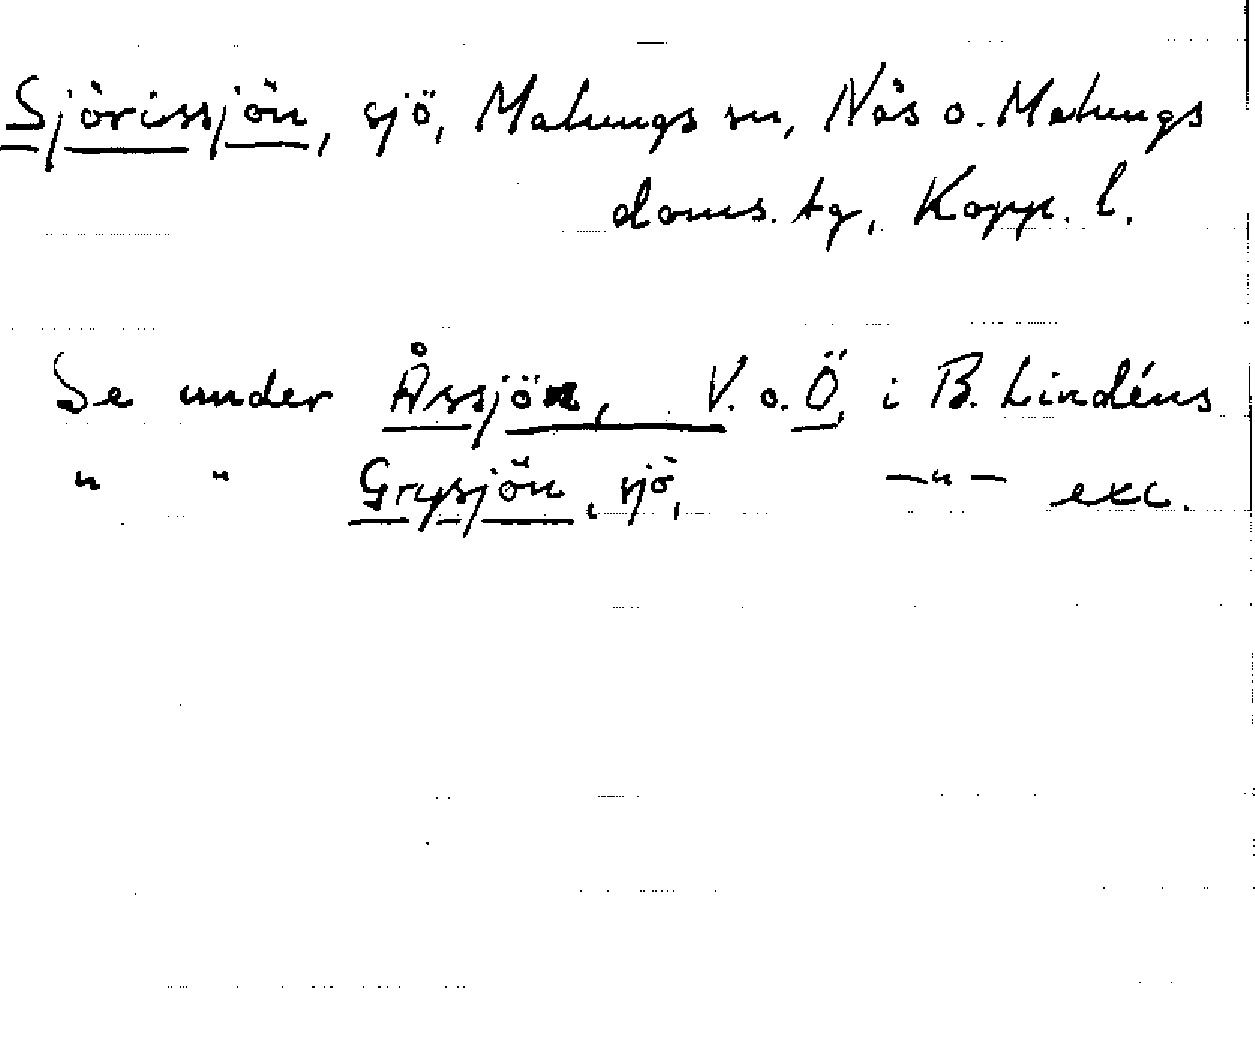 Sjörissjön, sjö, Malungs sn, Nås o. Malungs
doms. tg, Kopp. l.
Se under Årsjön, V. o. Ö, i B. Lindéns
" " Grysjön, sjö, —"— exc.